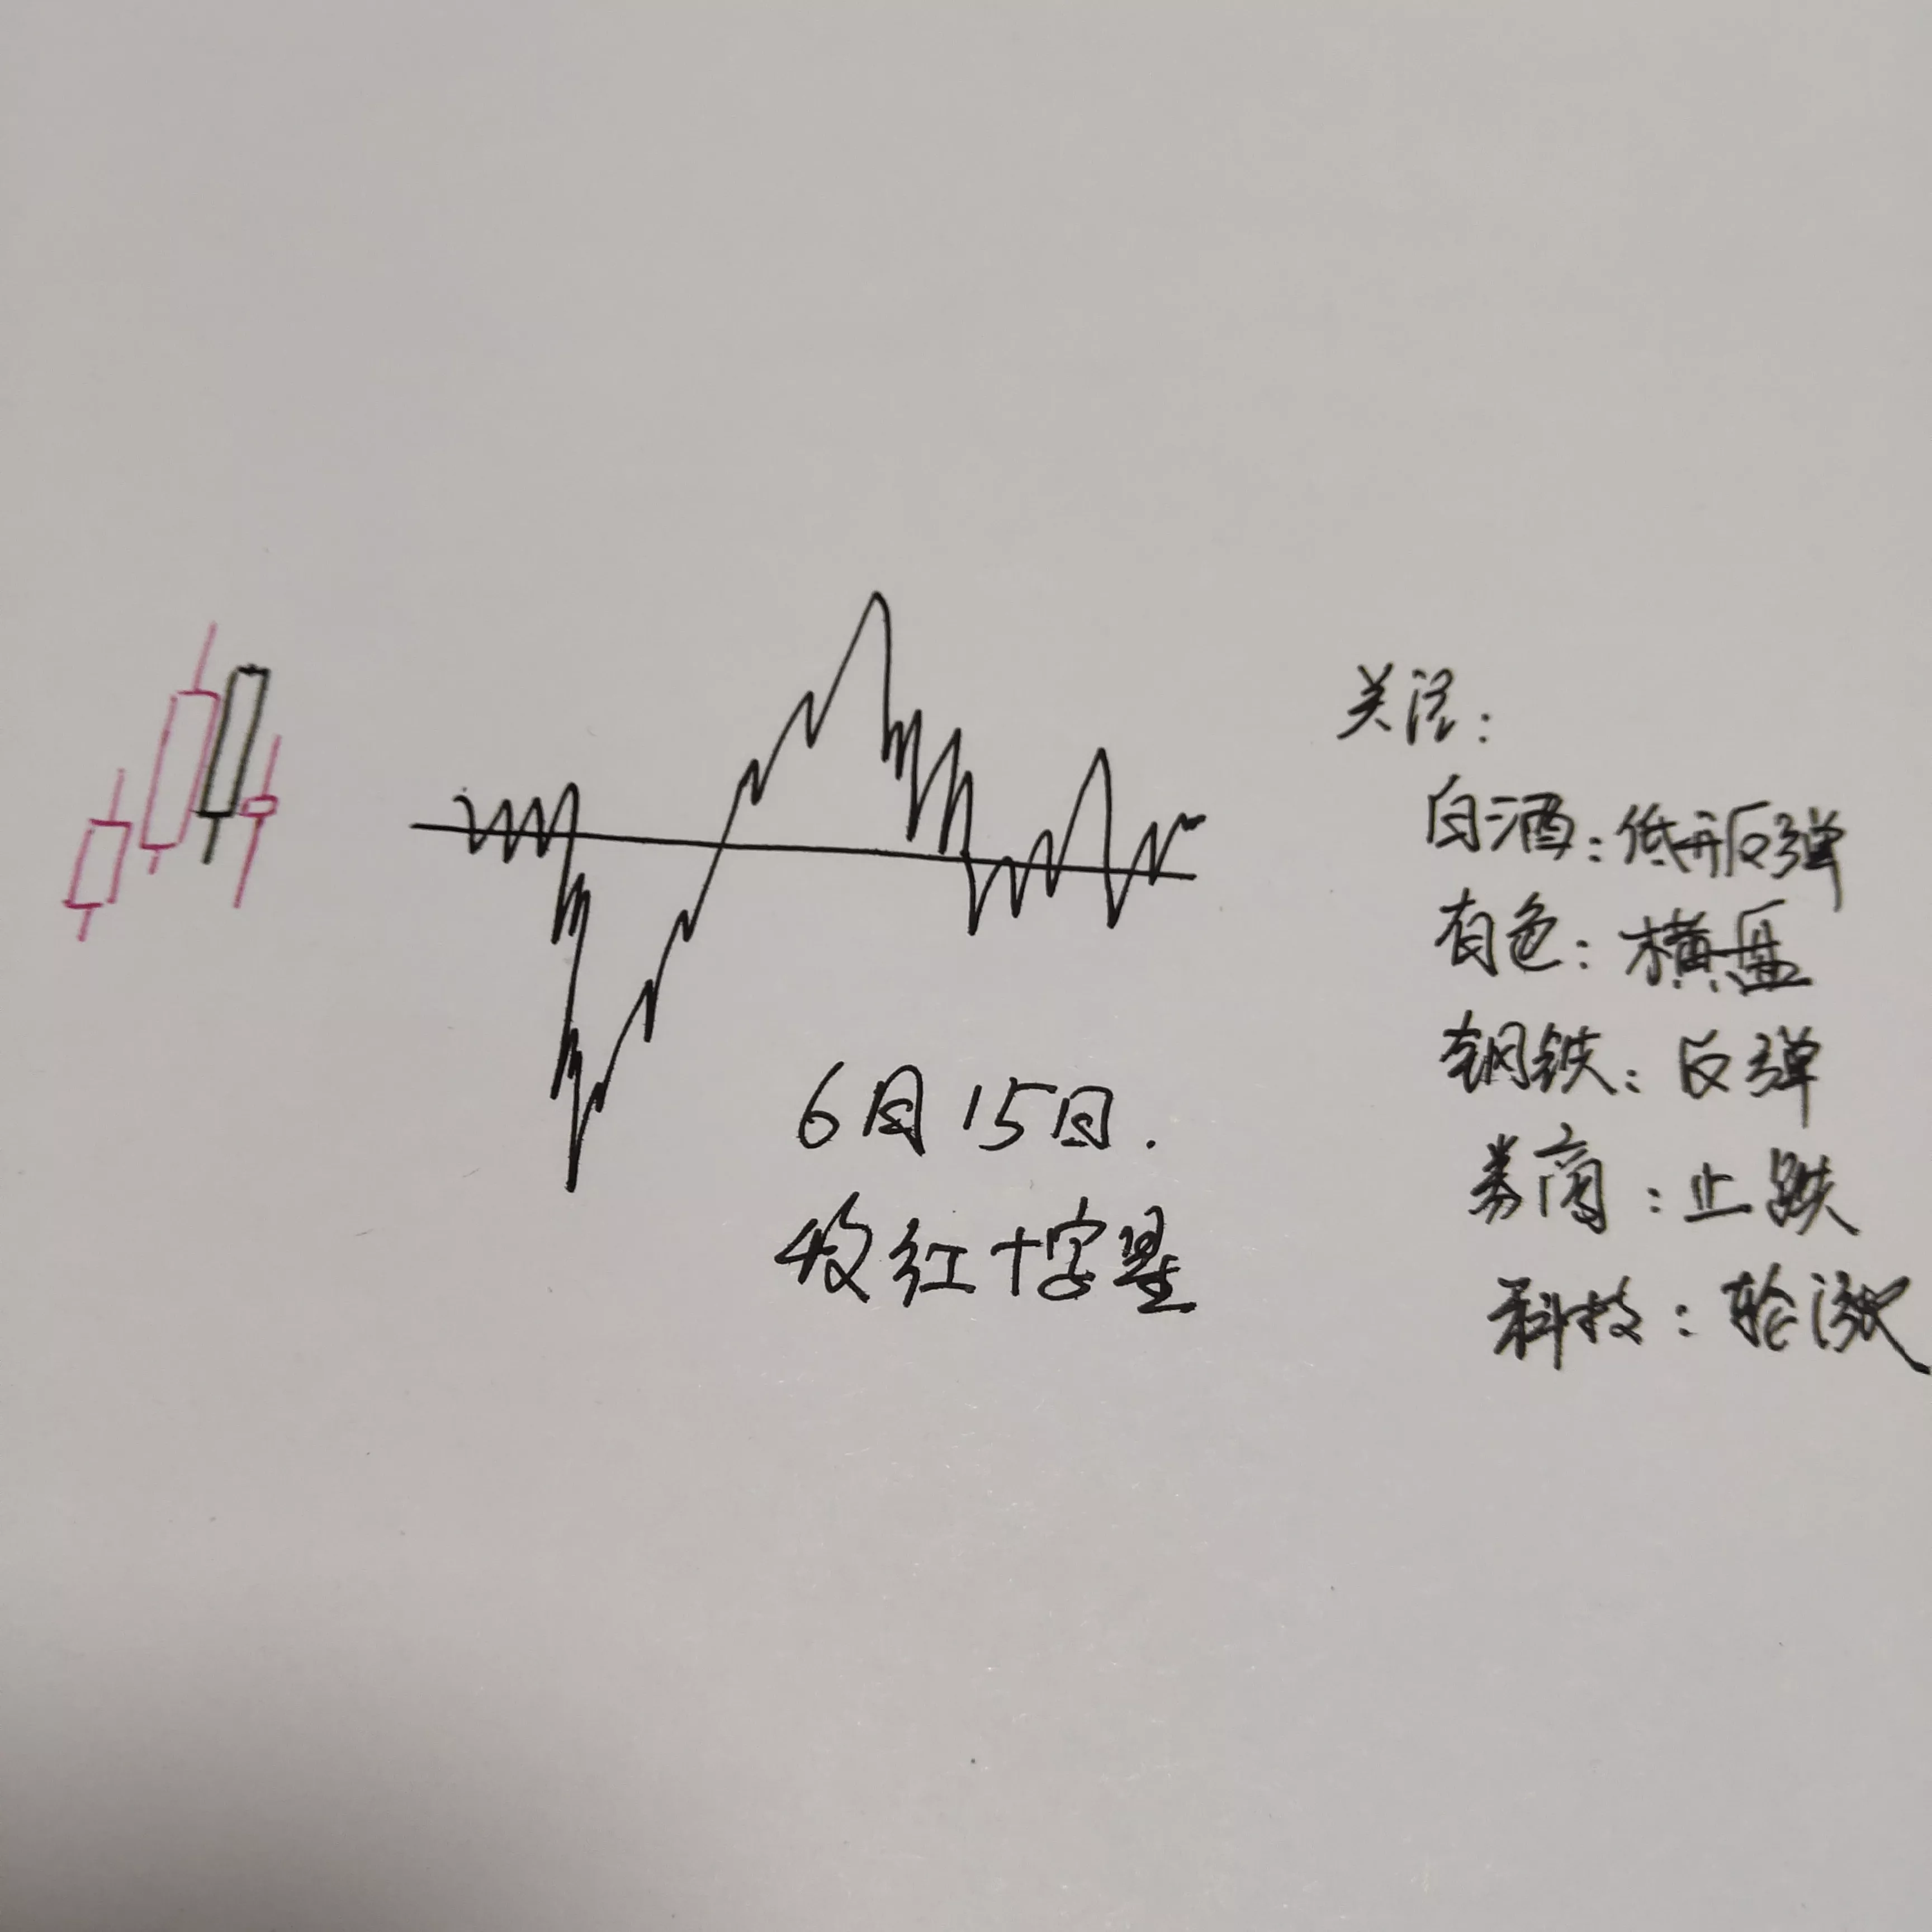 6月15日.
收红十字星
关注:
白酒:低开反弹
有色:横盘
钢铁:反弹
券商:止跌
科技:轮涨